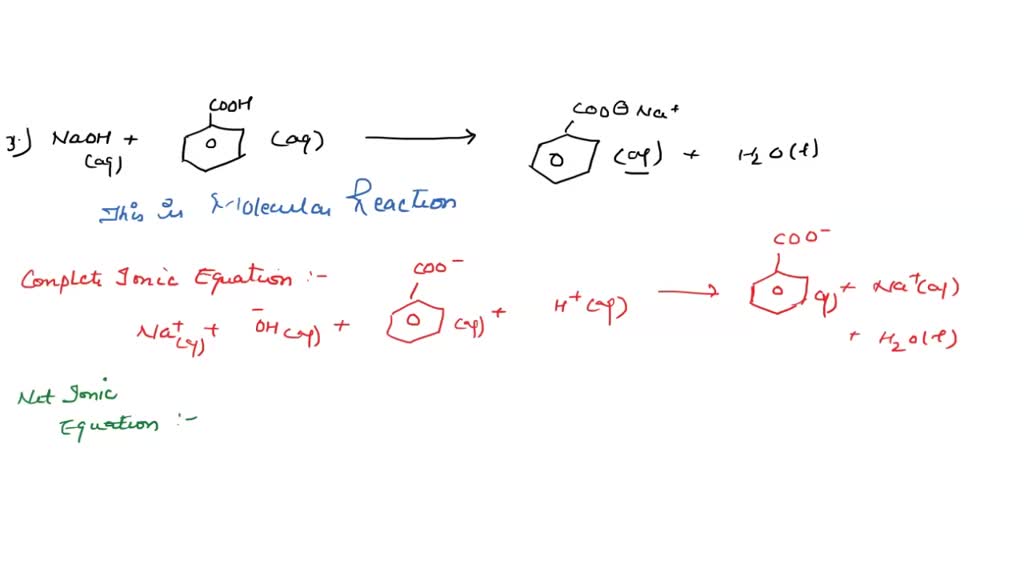 COOH COO⊖ Na+
I.) NaOH + (aq) → (aq) + H2O(l)
(aq)
This is Molecular Reaction
Complete Ionic Equation :- COO− COO−
Na+(aq) + −OH (aq) + (aq) + H+ (aq) → (aq) + Na+(aq)
+ H2O(l)
Net Ionic
Equation :-